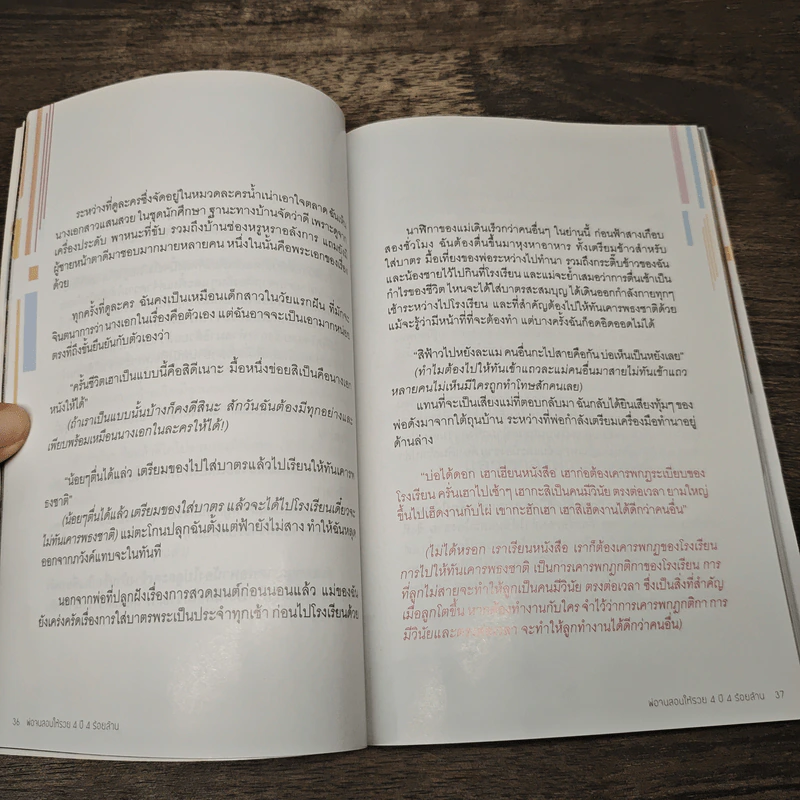 ระหว่างที่ดูละครซึ่งจัดอยู่ในหมวดละครน้ำเน่าเอาใจตลาด ฉันเห็น
นางเอกสาวแสนสวย ในชุดนักศึกษา ฐานะทางบ้านจัดว่าดี เพราะดูจาก
เครื่องประดับ พาหนะที่ขับ รวมถึงบ้านช่องหรูหราอลังการ แถมยังมี
ผู้ชายหน้าตาดีมาชอบมากมายหลายคน หนึ่งในนั้นคือพระเอกของเรื่อง
ด้วย
ทุกครั้งที่ดูละคร ฉันคงเป็นเหมือนเด็กสาวในวัยแรกฝัน ที่มักจะ
จินตนาการว่า นางเอกในเรื่องคือตัวเอง แต่ฉันอาจจะเป็นเอามากหน่อย
ตรงที่ถึงขั้นยืนยันกับตัวเองว่า
"ครั้นชีวิตเฮาเป็นแบบนี้คือสิดีเนาะ มื้อหนึ่งข่อยสิเป็นคือนางเอก
หนังให้ได้"
(ถ้าเราเป็นแบบนั้นบ้างก็คงดีสินะ สักวันฉันต้องมีทุกอย่างและ
เพียบพร้อมเหมือนนางเอกในละครให้ได้!)
"น้อยๆตื่นได้แล่ว เตรียมของไปใส่บาตรแล้วไปเรียนให้ทันเคารพ
ธงชาติ"
(น้อยๆตื่นได้แล้ว เตรียมของใส่บาตร แล้วจะได้ไปโรงเรียนเดี๋ยวจะ
ไม่ทันเคารพธงชาติ) แม่ตะโกนปลุกฉันตั้งแต่ฟ้ายังไม่สาง ทำให้ฉันหลุด
ออกจากภวังค์แทบจะในทันที
นอกจากพ่อที่ปลูกฝังเรื่องการสวดมนต์ก่อนนอนแล้ว แม่ของฉัน
ยังเคร่งครัดเรื่องการใส่บาตรพระเป็นประจำทุกเช้า ก่อนไปโรงเรียนด้วย
36 พ่อจนสอนให้รวย 4 ปี 4 ร้อยล้าน
นาฬิกาของแม่เดินเร็วกว่าคนอื่นๆ ในย่านนี้ ก่อนฟ้าสางเกือบ
สองชั่วโมง ฉันต้องตื่นขึ้นมาหุงหาอาหาร ทั้งเตรียมข้าวสำหรับ
ใส่บาตร มื้อเที่ยงของพ่อระหว่างไปทำนา รวมถึงกระติ๊บข้าวของฉัน
และน้องชายไว้ไปกินที่โรงเรียน และแม่จะย้ำเสมอว่าการตื่นเช้าเป็น
กำไรของชีวิต ไหนจะได้ใส่บาตรสะสมบุญ ได้เดินออกกำลังกายทุกๆ
เช้าระหว่างไปโรงเรียน และที่สำคัญต้องไปให้ทันเคารพธงชาติด้วย
แม้จะรู้ว่ามีหน้าที่ที่จะต้องทำ แต่บางครั้งฉันก็อดอิดออดไม่ได้
"สิฟ้าวไปหยังละแม่ คนอื่นกะไปสายคือกัน บ่อเห็นเป็นหยังเลย"
(ทำไมต้องไปให้ทันเข้าแถวละแม่คนอื่นมาสายไม่ทันเข้าแถว
หลายคนไม่เห็นมีใครถูกทำโทษสักคนเลย)
แทนที่จะเป็นเสียงแม่ที่ตอบกลับมา ฉันกลับได้ยินเสียงทุ้มๆ ของ
พ่อดังมาจากใต้ถุนบ้าน ระหว่างที่พ่อกำลังเตรียมเครื่องมือทำนาอยู่
ด้านล่าง
"บ่อได้ดอก เฮาเฮียนหนังสือ เฮาก่อต้องเคารพกฎระเบียบของ
โรงเรียน ครั่นเฮาไปเช้าๆ เฮากะสิเป็นคนมีวินัย ตรงต่อเวลา ยามใหญ่
ขึ้นไปเฮ็ดงานกับไผ่ เขากะฮักเฮา เฮาสิเฮ็ดงานได้ดีกว่าคนอื่น"
(ไม่ได้หรอก เราเรียนหนังสือ เราก็ต้องเคารพกฎของโรงเรียน
การไปให้ทันเคารพธงชาติ เป็นการเคารพกฎกติกาของโรงเรียน การ
ที่ลูกไม่สายจะทำให้ลูกเป็นคนมีวินัย ตรงต่อเวลา ซึ่งเป็นสิ่งที่สำคัญ
เมื่อลูกโตขึ้น หากต้องทำงานกับใคร จำไว้ว่าการเคารพกฎกติกา การ
มีวินัยและตรงต่อเวลา จะทำให้ลูกทำงานได้ดีกว่าคนอื่น)
พ่อจนสอนให้รวย 4 ปี 4 ร้อยล้าน 37